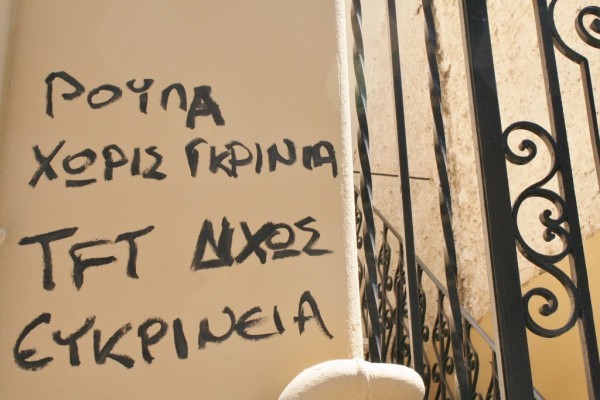 ΡΟΥΠΑ
ΧΩΡΙΣ ΓΚΡΙΝΙΑ
TFT ΔΙΧΩΣ
ΕΥΚΡΙΝΕΙΑ